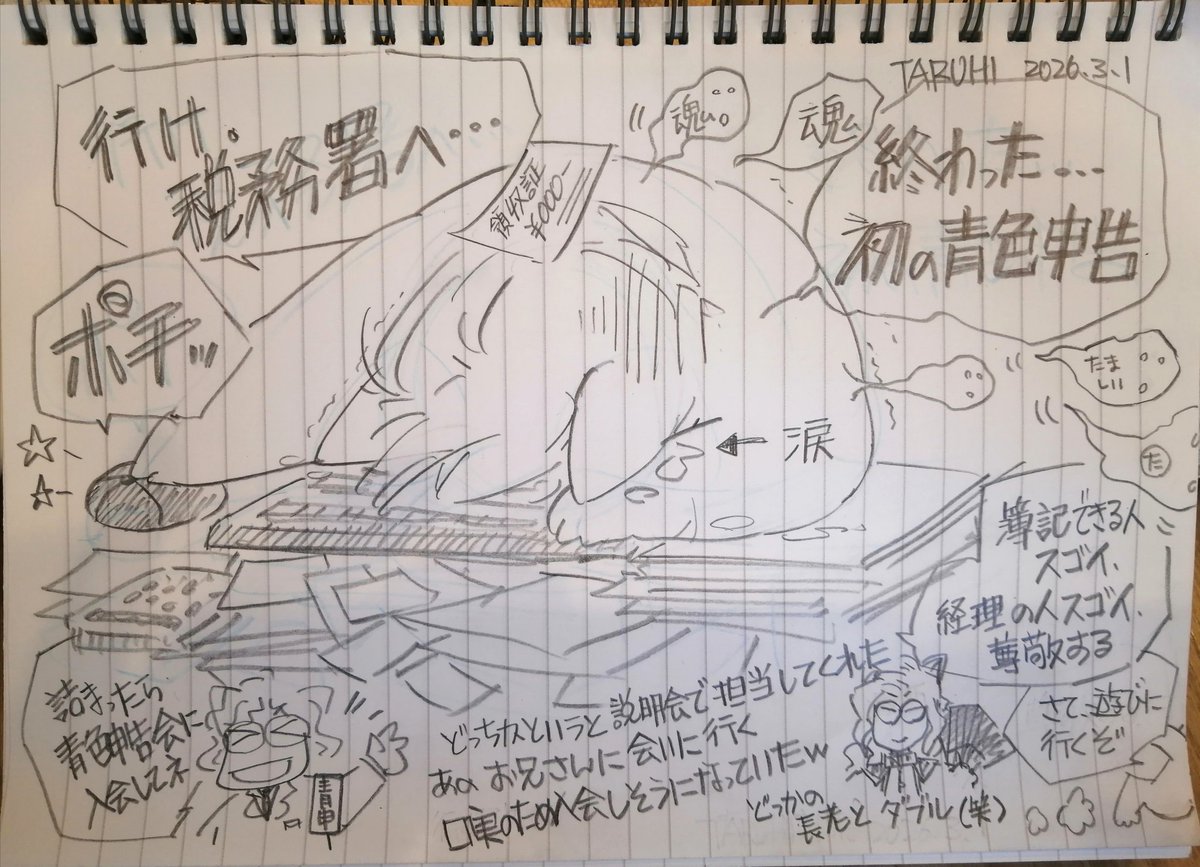 TARUHI 2026.3.1
行け
税務署へ…
領収証
¥000-
魂
魂
終わった…
初の青色申告
ポチッ
たま
しい
た
涙
簿記できる人
スゴイ、
経理の人スゴイ、
尊敬する
さて、遊びに
行くぞ
詰まったら
青色申告会に
入会してネ
青申
どっちかというと説明会で担当してくれた
あの お兄さんに会いに行く
口実のため入会しそうになっていたw
どっかの
長老とダブル(笑)